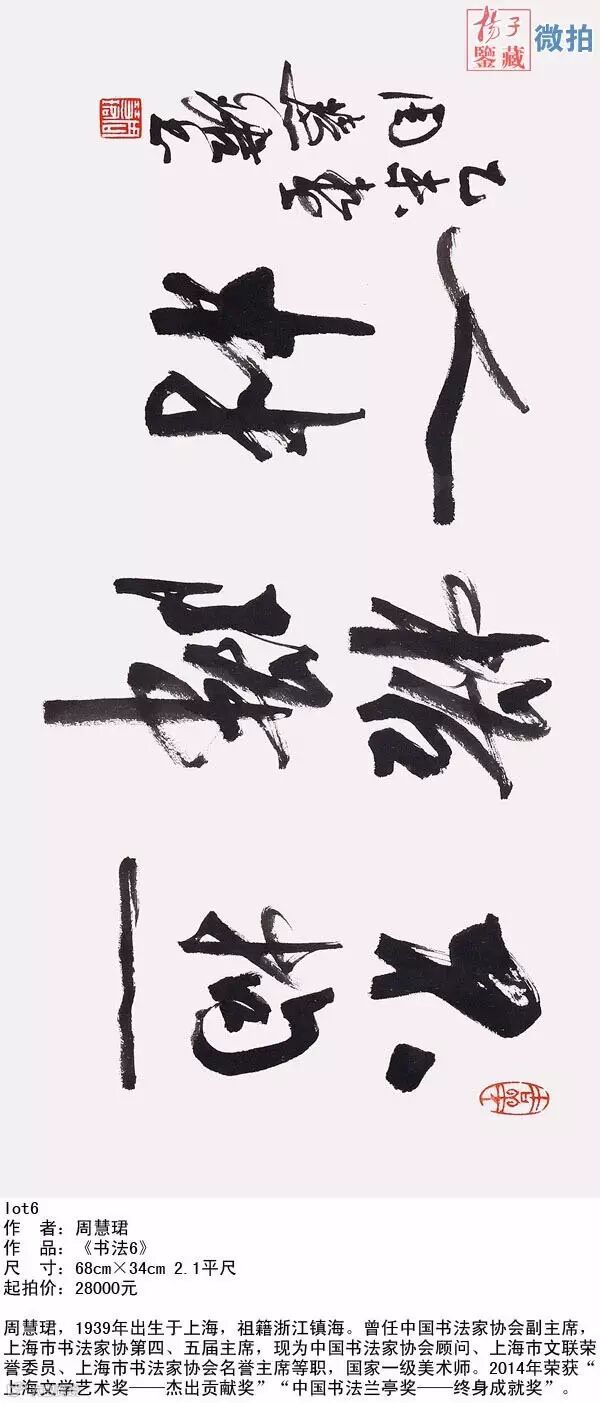 揚子
鑒藏
微拍
不拘一
格降
人材
乙未
周慧珺
lot6
作 者：周慧珺
作 品：《书法6》
尺 寸：68cm×34cm 2.1平尺
起拍价：28000元
周慧珺，1939年出生于上海，祖籍浙江镇海。曾任中国书法家协会副主席，
上海市书法家协第四、五届主席，现为中国书法家协会顾问、上海市文联荣
誉委员、上海市书法家协会名誉主席等职，国家一级美术师。2014年荣获“
上海文学艺术奖——杰出贡献奖”“中国书法兰亭奖——终身成就奖”。